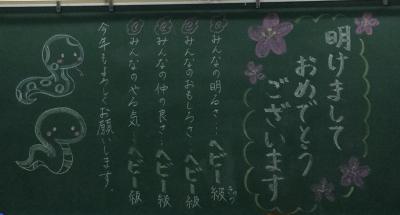 明けまして
おめでとう
ございます
みんなの明るさ…ヘビー級
みんなのおもしろさ…ヘビー級
みんなの仲の良さ…ヘビー級
みんなのやる気…ヘビー級
今年もよろしくお願いします。